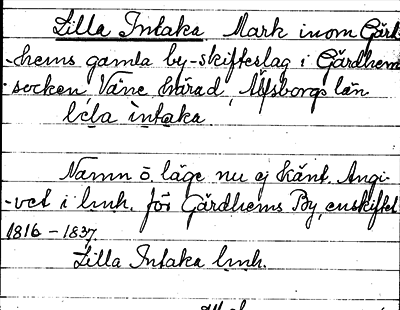 Lilla Intaka Mark inom Gärd
-hems gamla by-skifteslag i Gärdhem
socken Väne härad, Älfsborgs län
lela intaka
Namn o. läge nu ej känt. Angi-
-vet i lmh. för Gärdhems By, enskiftet
1816-1837
Lilla Intaka lmh.